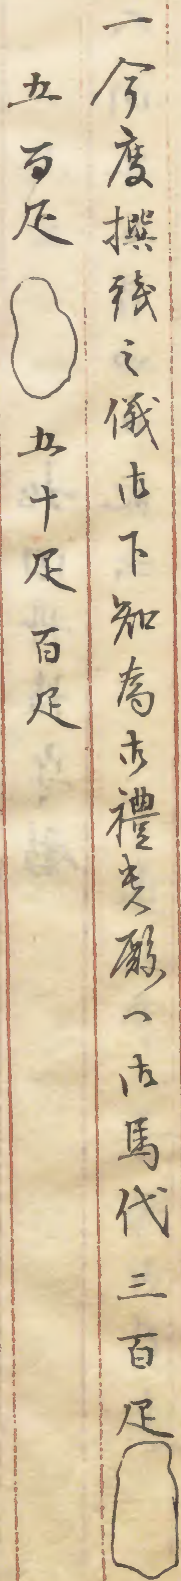 一今度撰銭之儀御下知為御禮貴殿へ御馬代三百疋
五百疋 五十疋 百疋